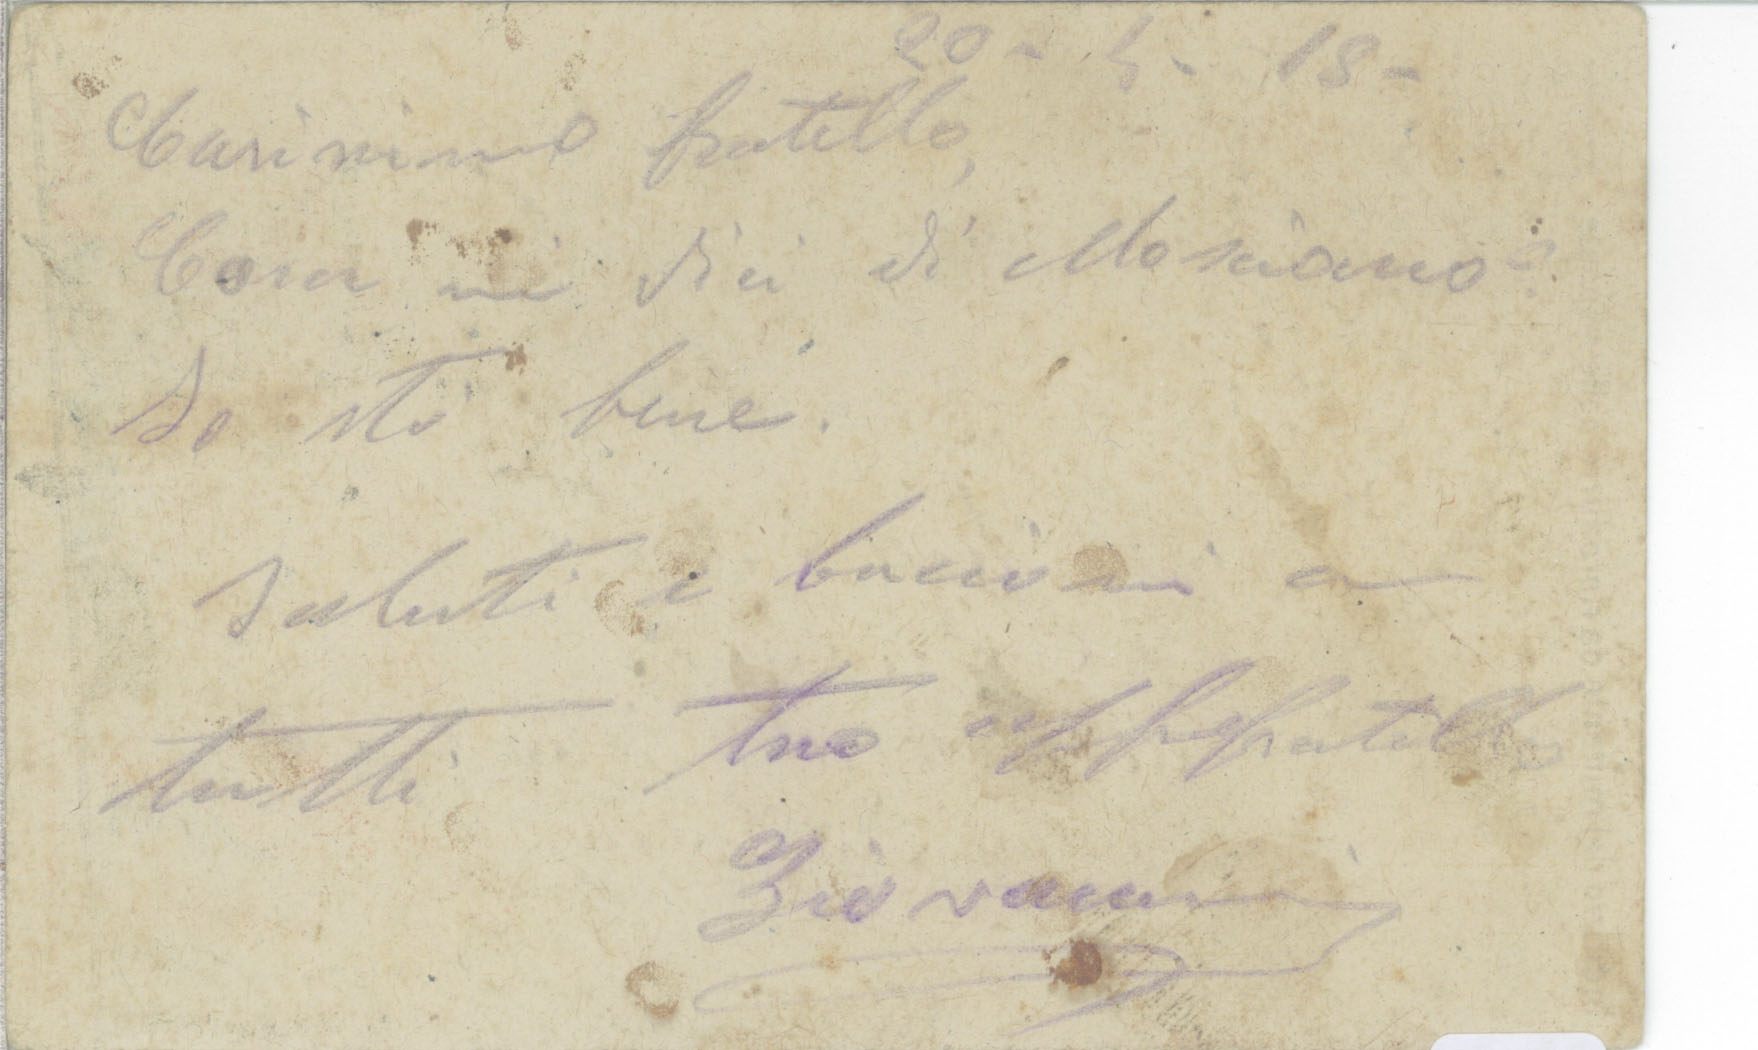 20 - 5 - 18 -
Carissimo fratello,
Cosa mi dici di Mosciano?
Io stò bene.
Saluti e bacioni a
tutti tuo aff fratello
Giovanni